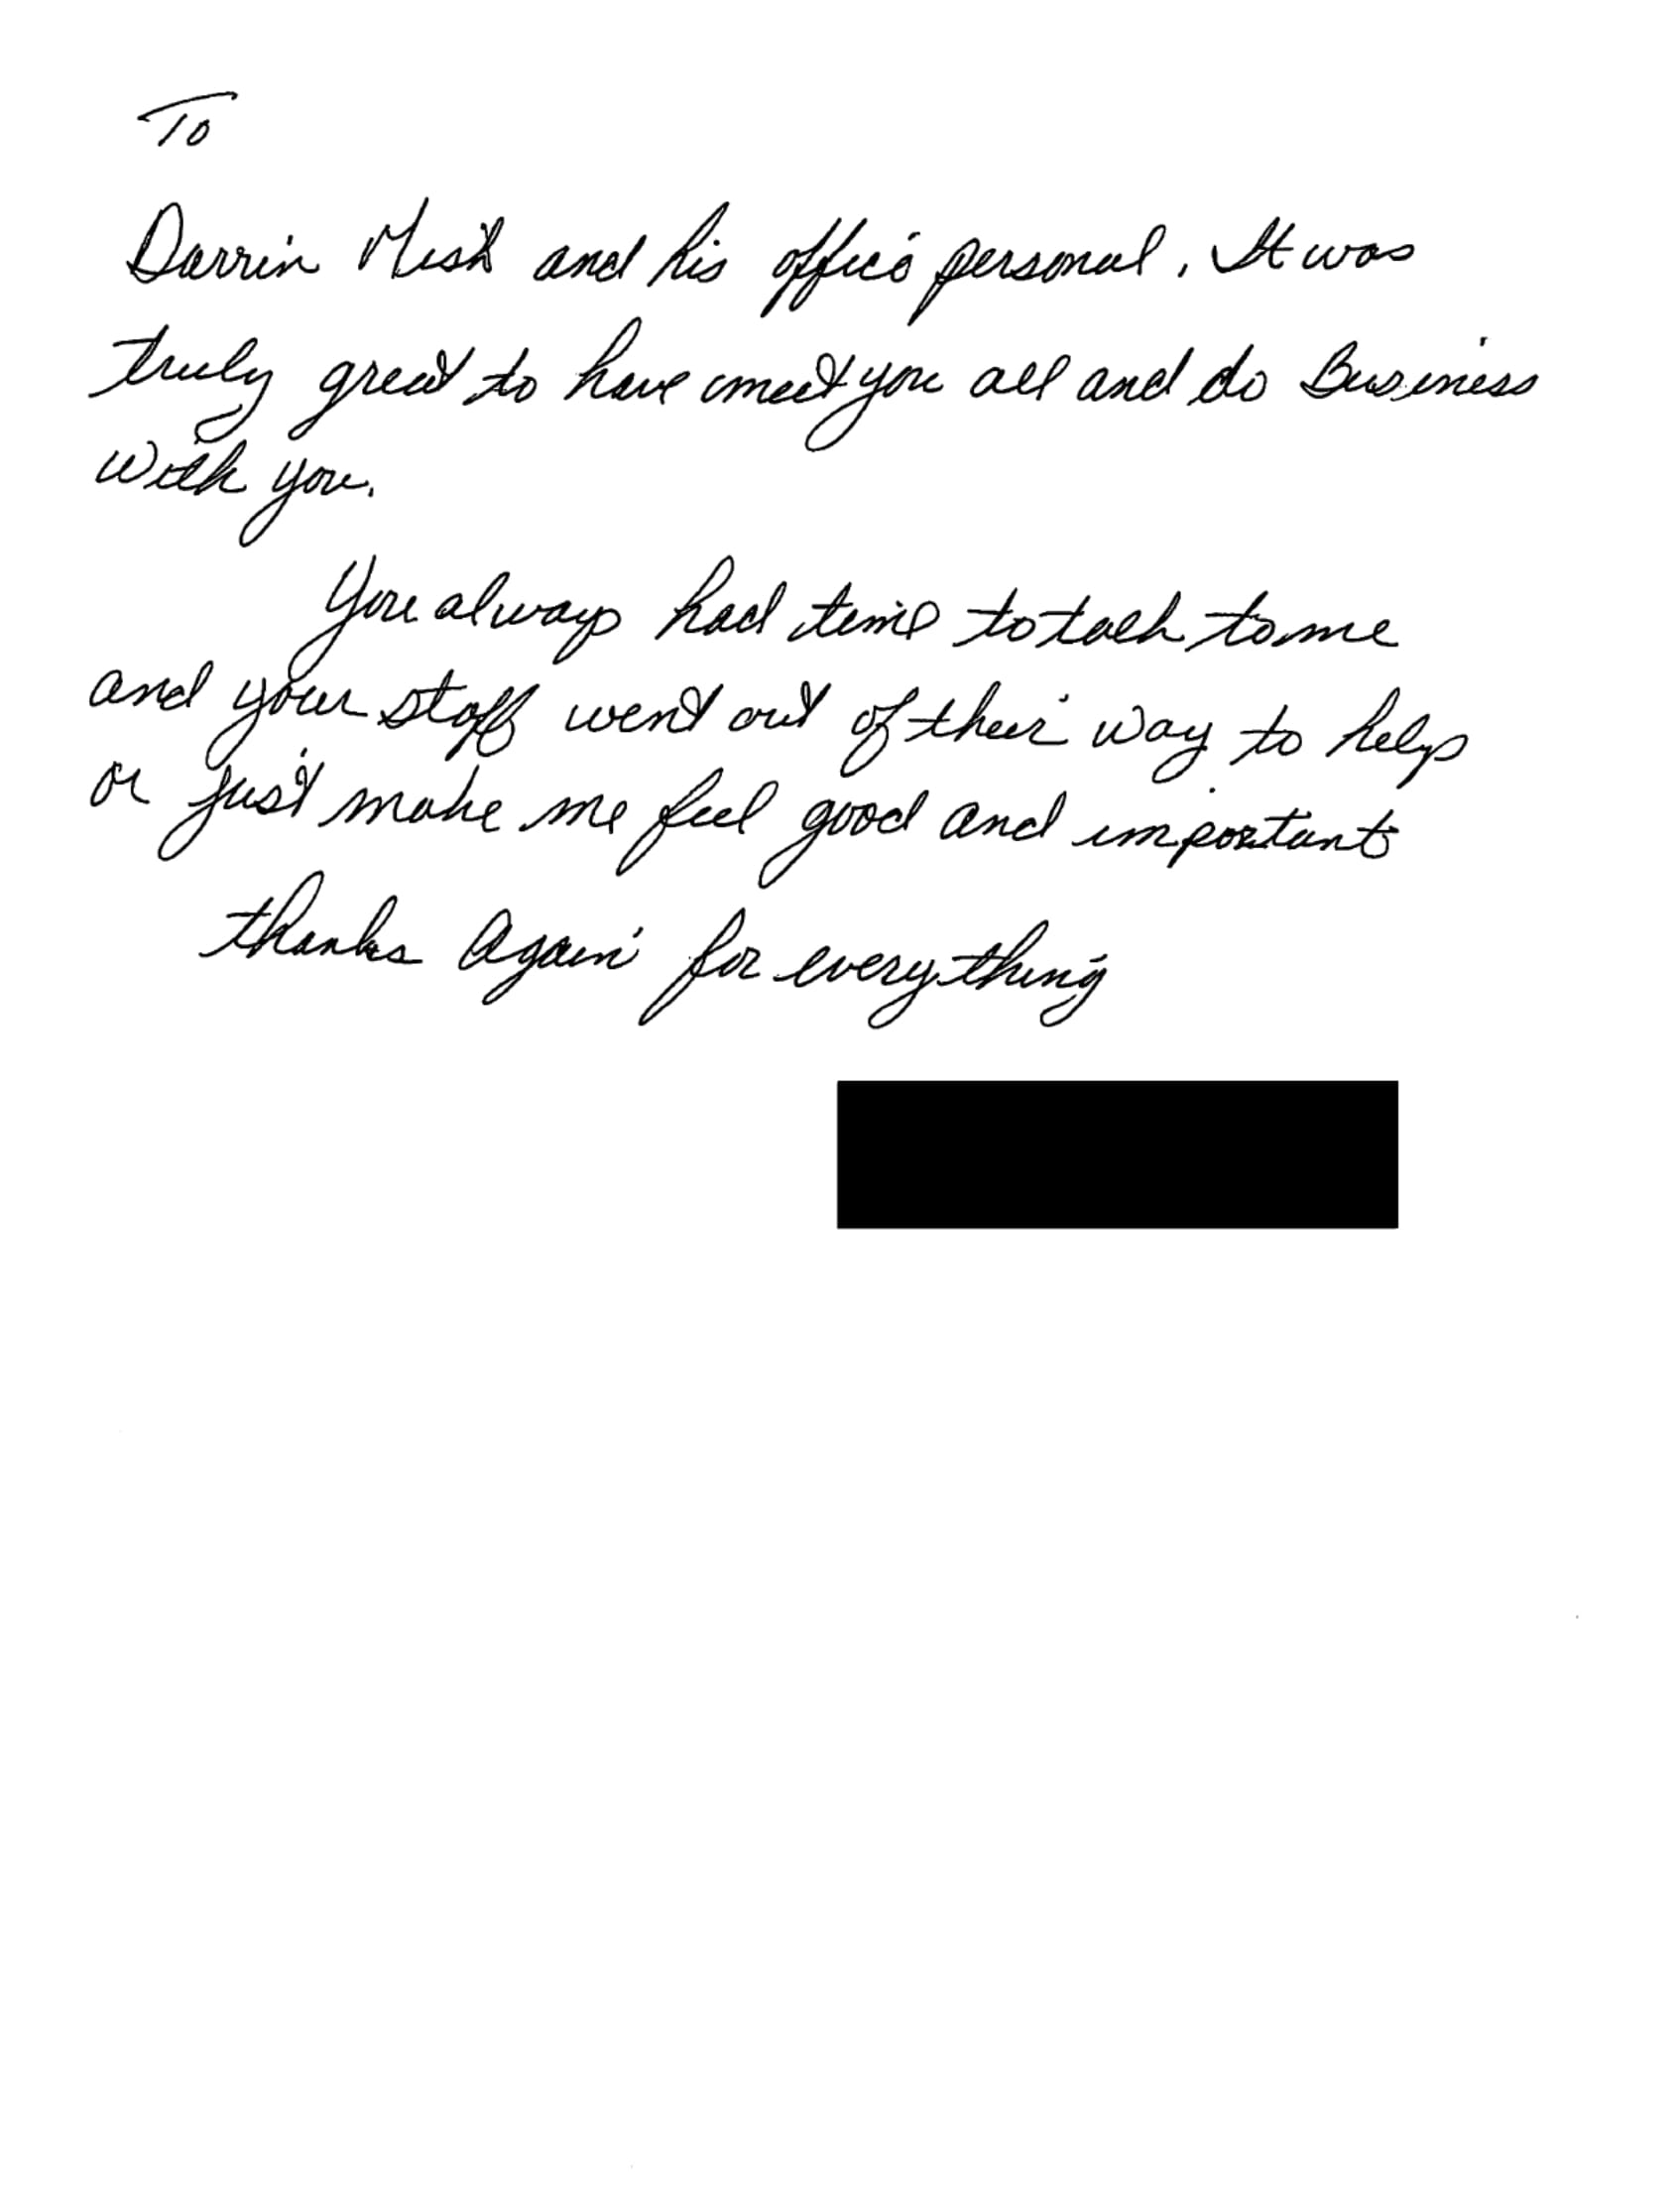 To
Darrin Mish and his office personal. It was
truly great to have meet you all and do Business
with you.
You always had time to talk to me
and your staff went out of their way to help
or just make me feel good and important
thanks Again for everything